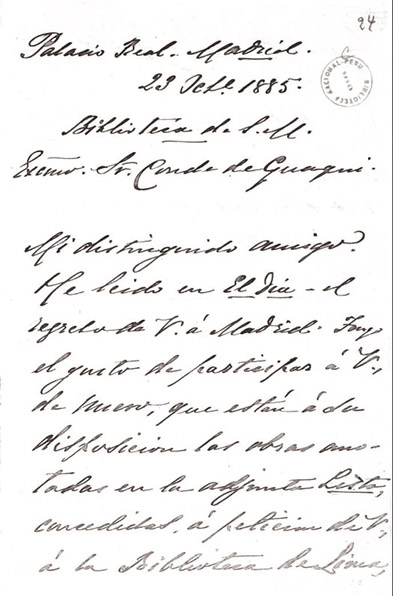 24
Palacio Real. Madrid.
23 Octe. 1885.
BIBLIOTECA NACIONAL-PERU
Biblioteca de S. M.
Excmo. Sr. Conde de Guaqui.
Mi distinguido amigo.
He leido en El Dia - el
regreso de V. á Madrid. Tengo
el gusto de participar á V.,
de nuevo, que están á su
disposicion las obras ano-
tadas en la adjunta Lista,
concedidas, á peticion de V.,
á la Biblioteca de Lima,